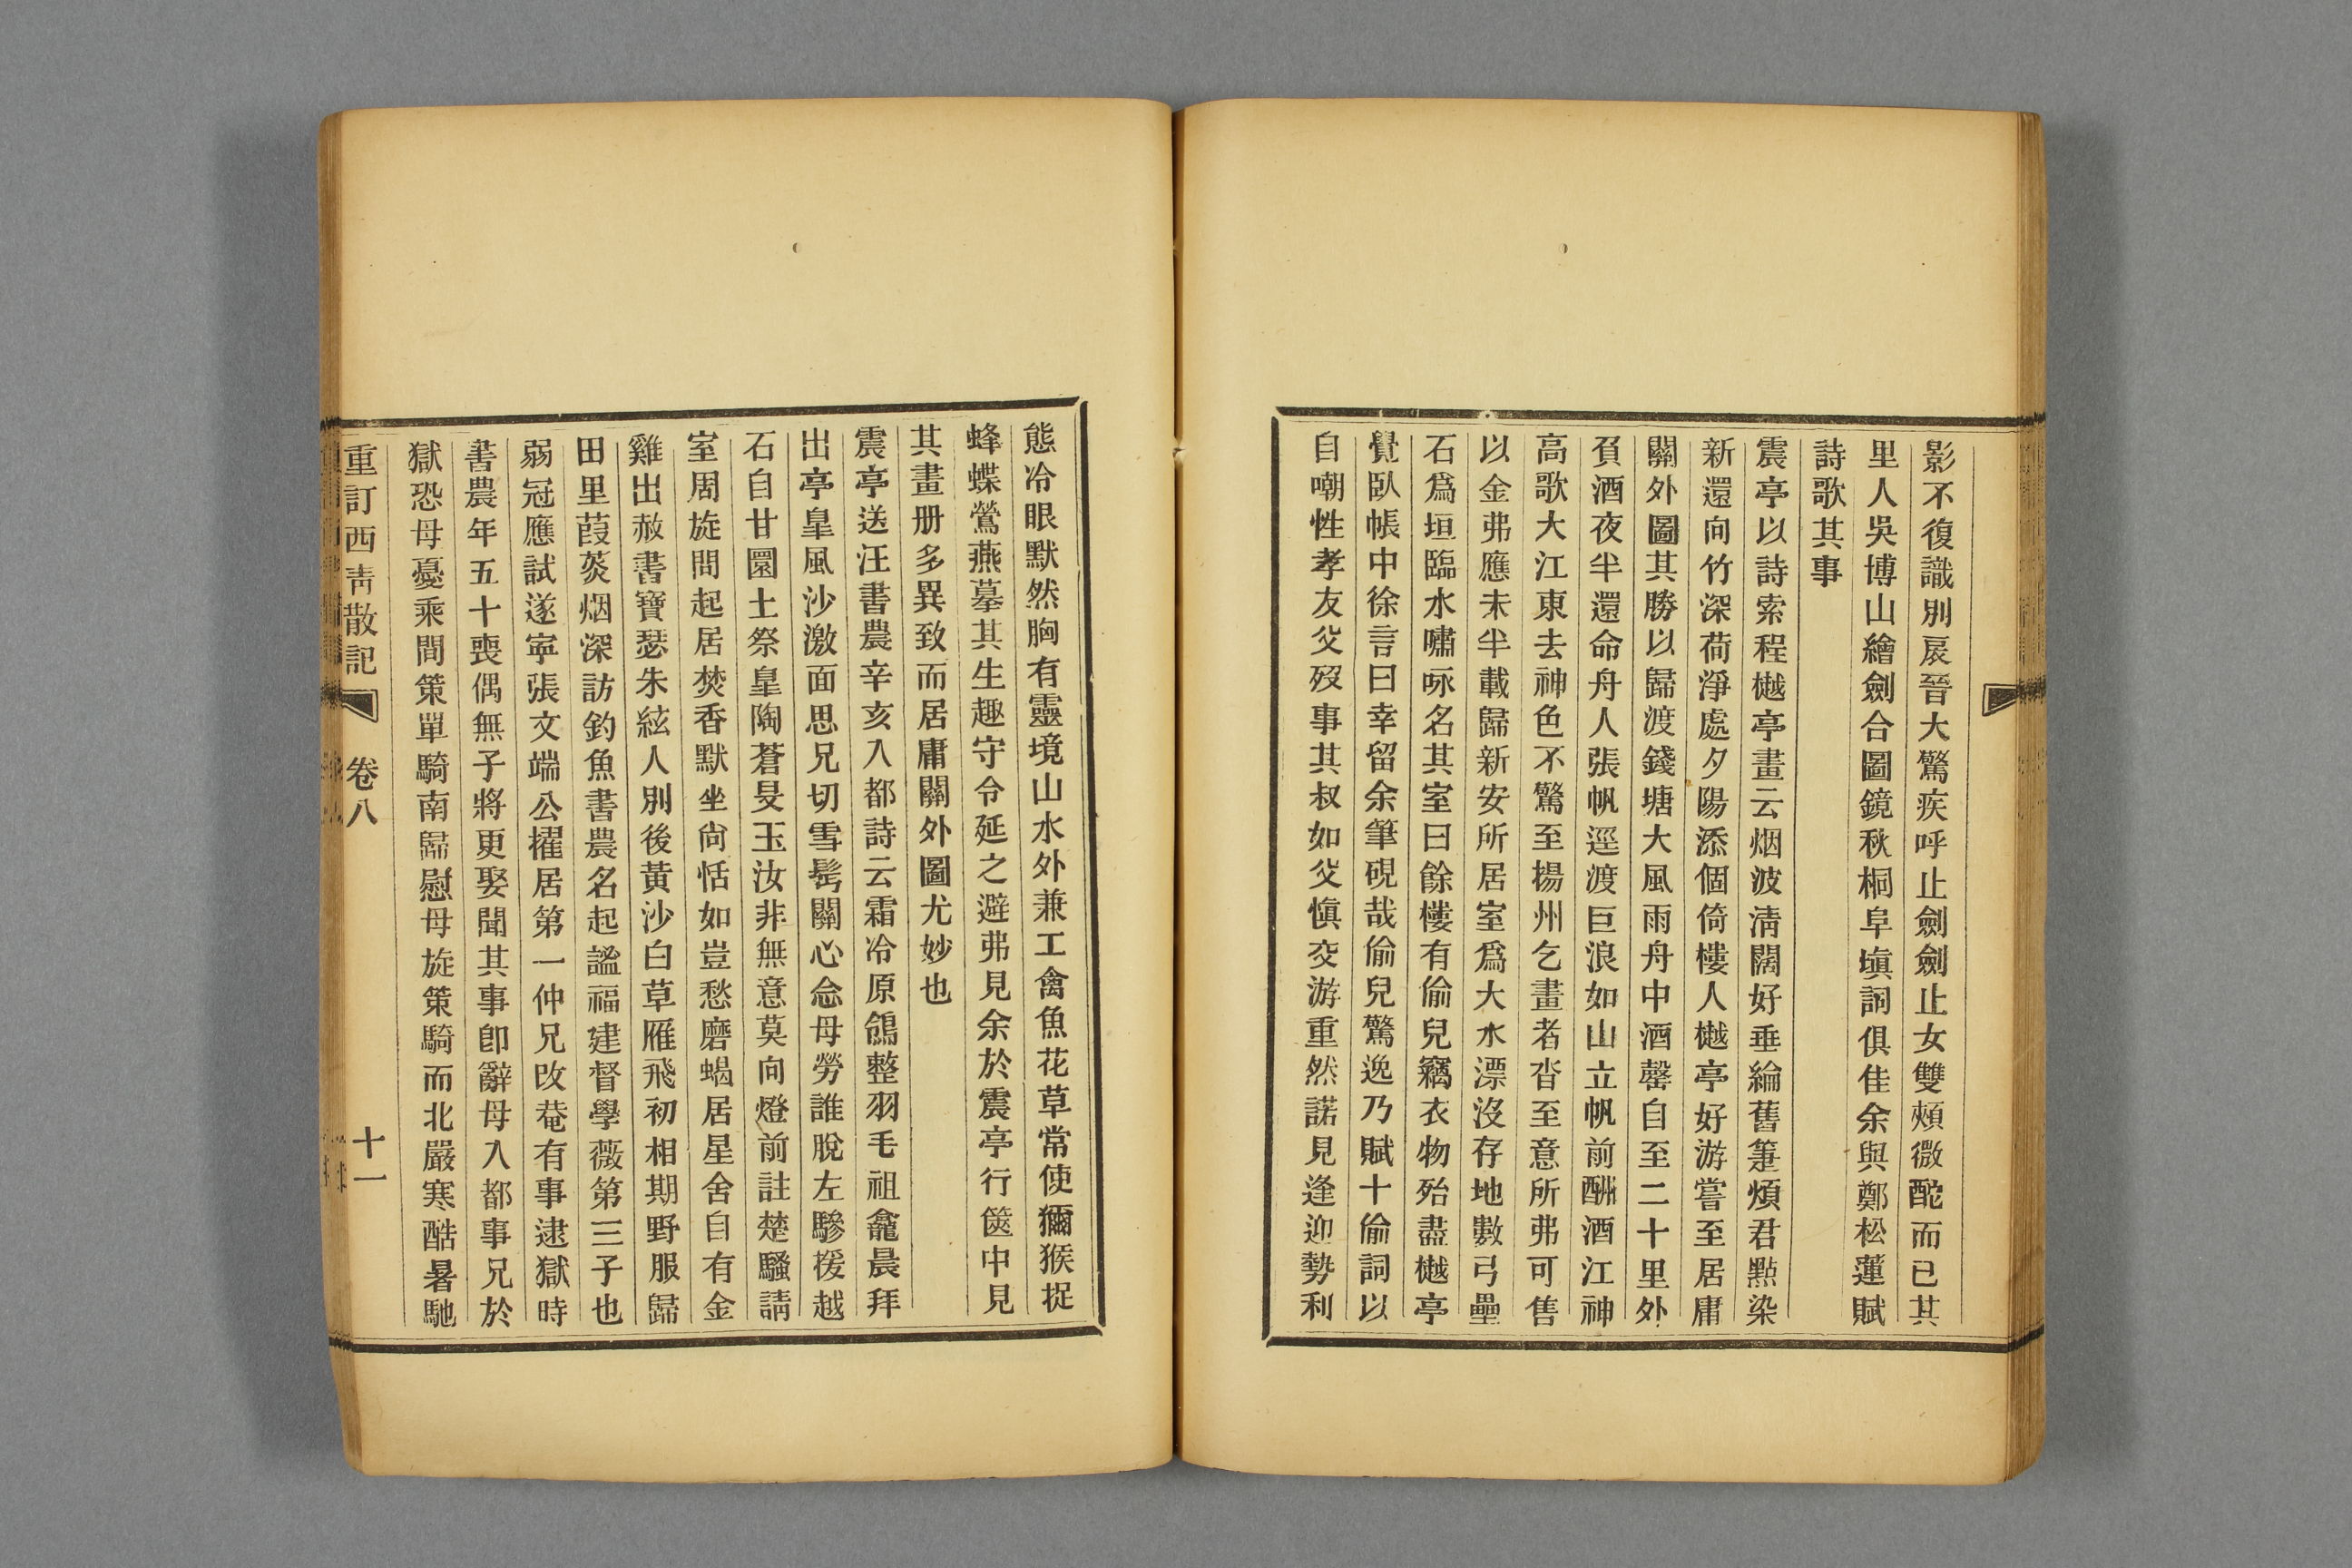 影不復識別扆晉大驚疾呼止劍劍止女雙頰微酡而已其
里人吳博山繪劍合圖鏡秋桐阜塡詞俱佳余與鄭松蓮賦
詩歌其事
震亭以詩索程樾亭畫云烟波淸闊好垂綸舊箑煩君點染
新還向竹深荷淨處夕陽添個倚樓人樾亭好游嘗至居庸
關外圖其勝以歸渡錢塘大風雨舟中酒罄自至二十里外
負酒夜半還命舟人張帆逕渡巨浪如山立帆前酬酒江神
高歌大江東去神色不驚至揚州乞畫者沓至意所弗可售
以金弗應未半載歸新安所居室爲大水漂沒存地數弓壘
石爲垣臨水嘯咏名其室曰餘樓有偷兒竊衣物殆盡樾亭
覺臥帳中徐言曰幸留余筆硯哉偷兒驚逸乃賦十偷詞以
自嘲性孝友父歿事其叔如父愼交游重然諾見逢迎勢利
態冷眼默然胸有靈境山水外兼工禽魚花草常使獼猴捉
蜂蝶鶯燕摹其生趣守令延之避弗見余於震亭行篋中見
其畫册多異致而居庸關外圖尤妙也
震亭送汪書農辛亥入都詩云霜冷原鴒整羽毛祖龕晨拜
出亭皐風沙激面思兄切雪髩關心念母勞誰脫左驂援越
石自甘圜土祭皐陶蒼旻玉汝非無意莫向燈前註楚騷請
室周旋問起居焚香默坐尙恬如豈愁磨蝎居星舍自有金
雞出赦書寶瑟朱絃人別後黃沙白草雁飛初相期野服歸
田里葭菼烟深訪釣魚書農名起謐福建督學薇第三子也
弱冠應試遂寧張文端公擢居第一仲兄改菴有事逮獄時
書農年五十喪偶無子將更娶聞其事卽辭母入都事兄於
獄恐母憂乘間策單騎南歸慰母旋策騎而北嚴寒酷暑馳
重訂西靑散記 卷八 十一